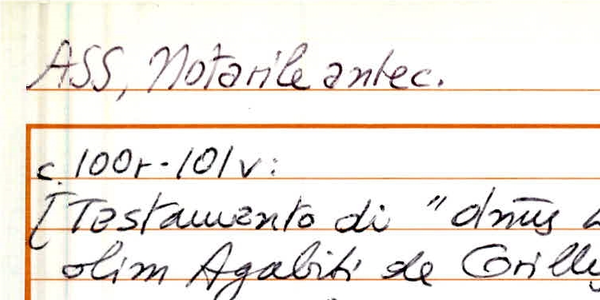 ASS, Notarile antec.
c. 100r-101v:
[Testamento di "dnūs
olim Agabiti de Grilly